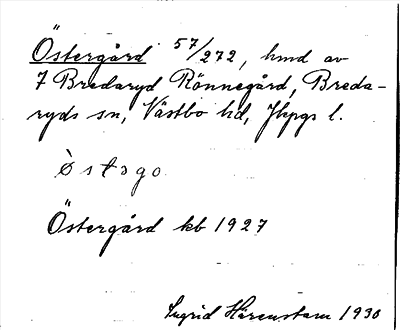 Östergård 57/272, hmd av
7 Bredaryd Rönnegård, Breda-
ryds sn, Västbo hd, Jkpgs l.
östago
Östergård kb 1927
Ingrid Härenstam 1930